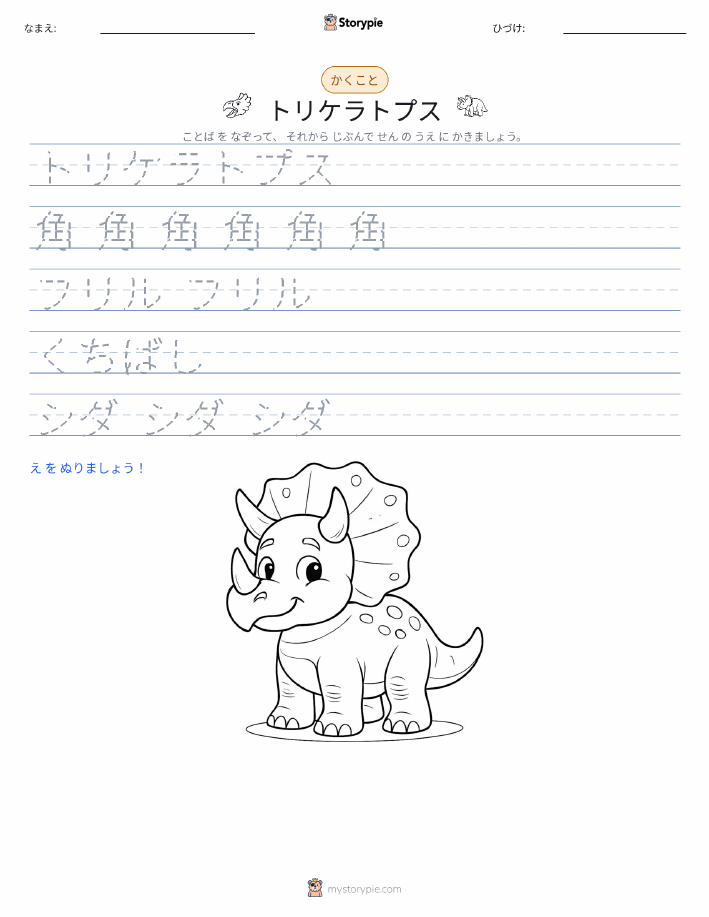 なまえ:
Storypie
ひづけ:
かくこと
トリケラトプス
ことば を なぞって、 それから じぶんで せん の うえ に かきましょう。
トリケラトプス
角 角 角 角 角 角
フリル フリル
くちばし
シダ シダ シダ
え を ぬりましょう！
mystorypie.com